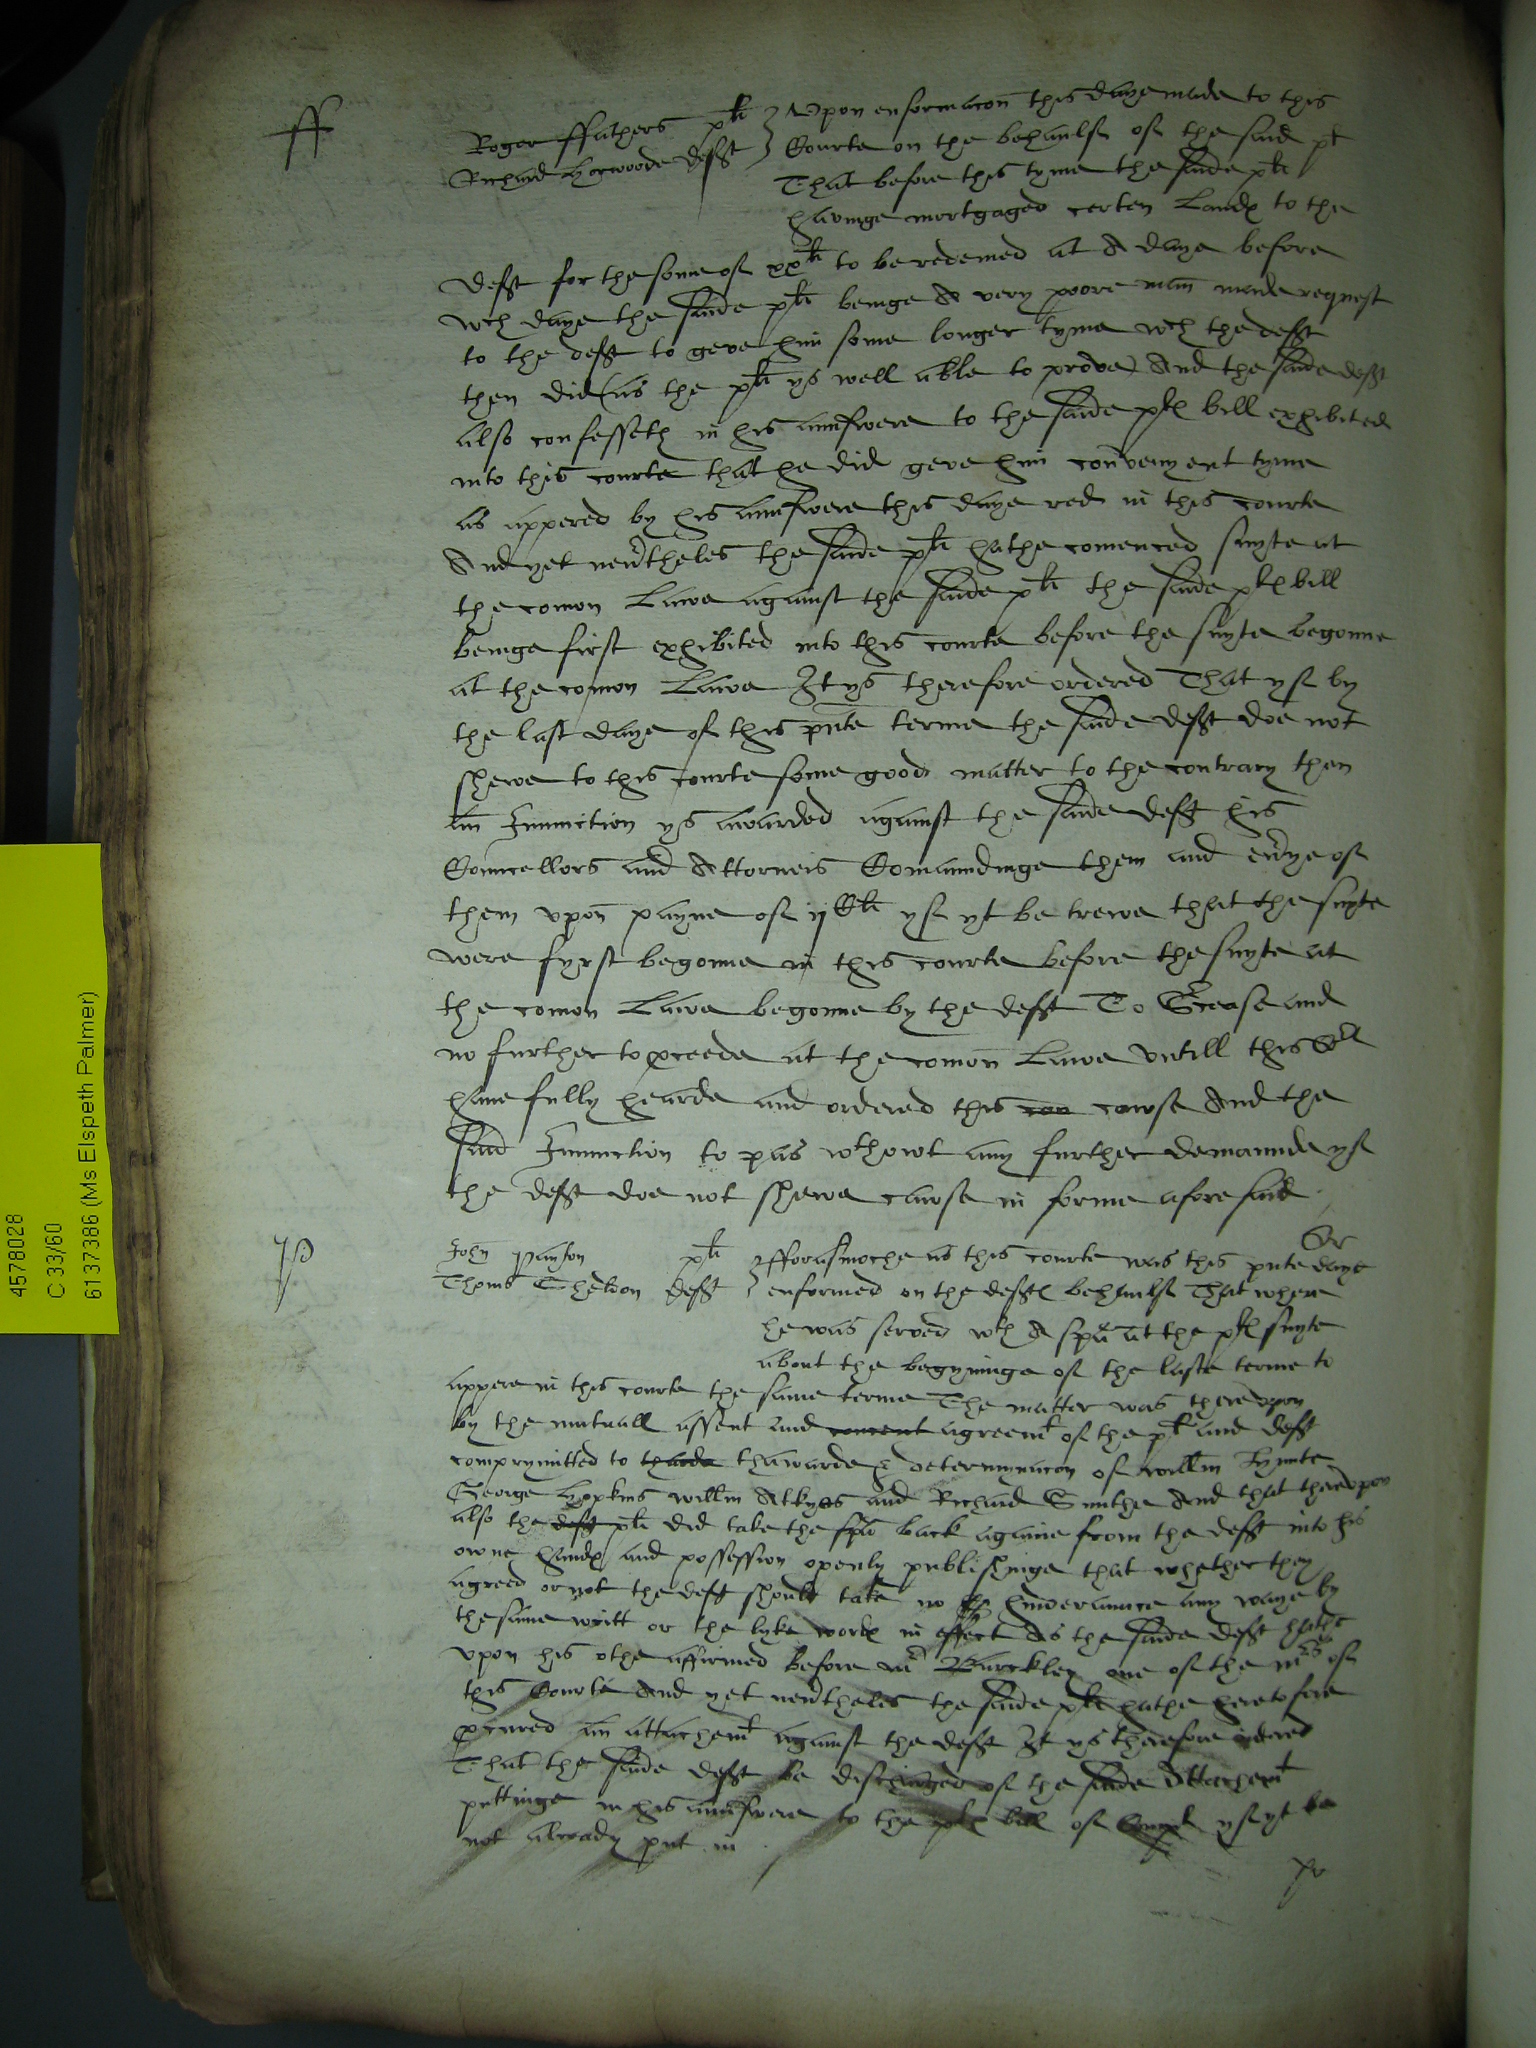 ff
Roger ffathers plt
Richard Horwoode deft
Upon enformacon this daye made to this
Courte on the behaulfe of the said plt
That before this tyme the saide plt
havinge mortgaged certen Landes to the
deft for the some of xxli to be redemed at A daye before
wch daye the saide plt beinge A very poore man made request
to the deft to geve him some longer tyme wch the deft
then did (as the plt ys well able to prove) And the saide deft
also confesseth in his aunswere to the saide ples bill exhibited
into this courte that he did geve him convenyent tyme
as appered by his aunswere this daye red in this courte
And yet nevertheles the saide plt hathe comenced suyte at
the comon Lawe against the saide plt the saide ples bill
beinge first exhibited into this courte before the suyte begonne
at the comon Lawe It ys therefore ordered That yf by
the last daye of this pnte terme the saide deft doe not
shewe to this courte some good matter to the contrary then
an Iniunction ys awarded against the saide deft his
Councellors and Attorneis Comaundinge them and evrye of
them upon payne of ij Cli yf yt be trewe that the suyte
were fyrst begonne in this courte before the suyte at
the comon Lawe begonne by the deft To Surcease and
no further to pceede at the comon Lawe untill this Cort
have fully hearde and ordered this cau cawse And the
said Iniunction to pas wthowt any further demaunde yf
the deft doe not shewe cawse in forme aforesaid
P
John Panson plt
Thoms Cheldon deft
Or
fforasmoche as this courte was this pnte daye
enformed on the deftes behaulfe That where
he was served wth A spa at the ples suyte
about the begynninge of the laste terme to
appere in this courte the same terme The matter was thereupon
by the mutuall assent and consent agreemt of the plt and deft
comprymitted to thawarde & determynacon of willm
George Hopkins willm Atkyns and Richard Smithe And that thereupon
also the deft plt did take the spa back againe from the deft into his
owne handes and possession openly publishinge that whether they
agreed or not the deft should take no hinderaunce any waye by
the same writt or the lyke workes in effect As the saide deft hathe
upon his othe affirmed before mr Barckley one of the mrs of
this Courte And yet nevertheles the saide plt hathe heretofore
pcured an attachemt against the deft It ys therefore ordered
That the saide deft be discharged of the saide Attachemt
puttinge in his aunswere to the ples bill of Complt yf yt be
not already put in
4578028
C 33/60
6137386 (Ms Elspeth Palmer)